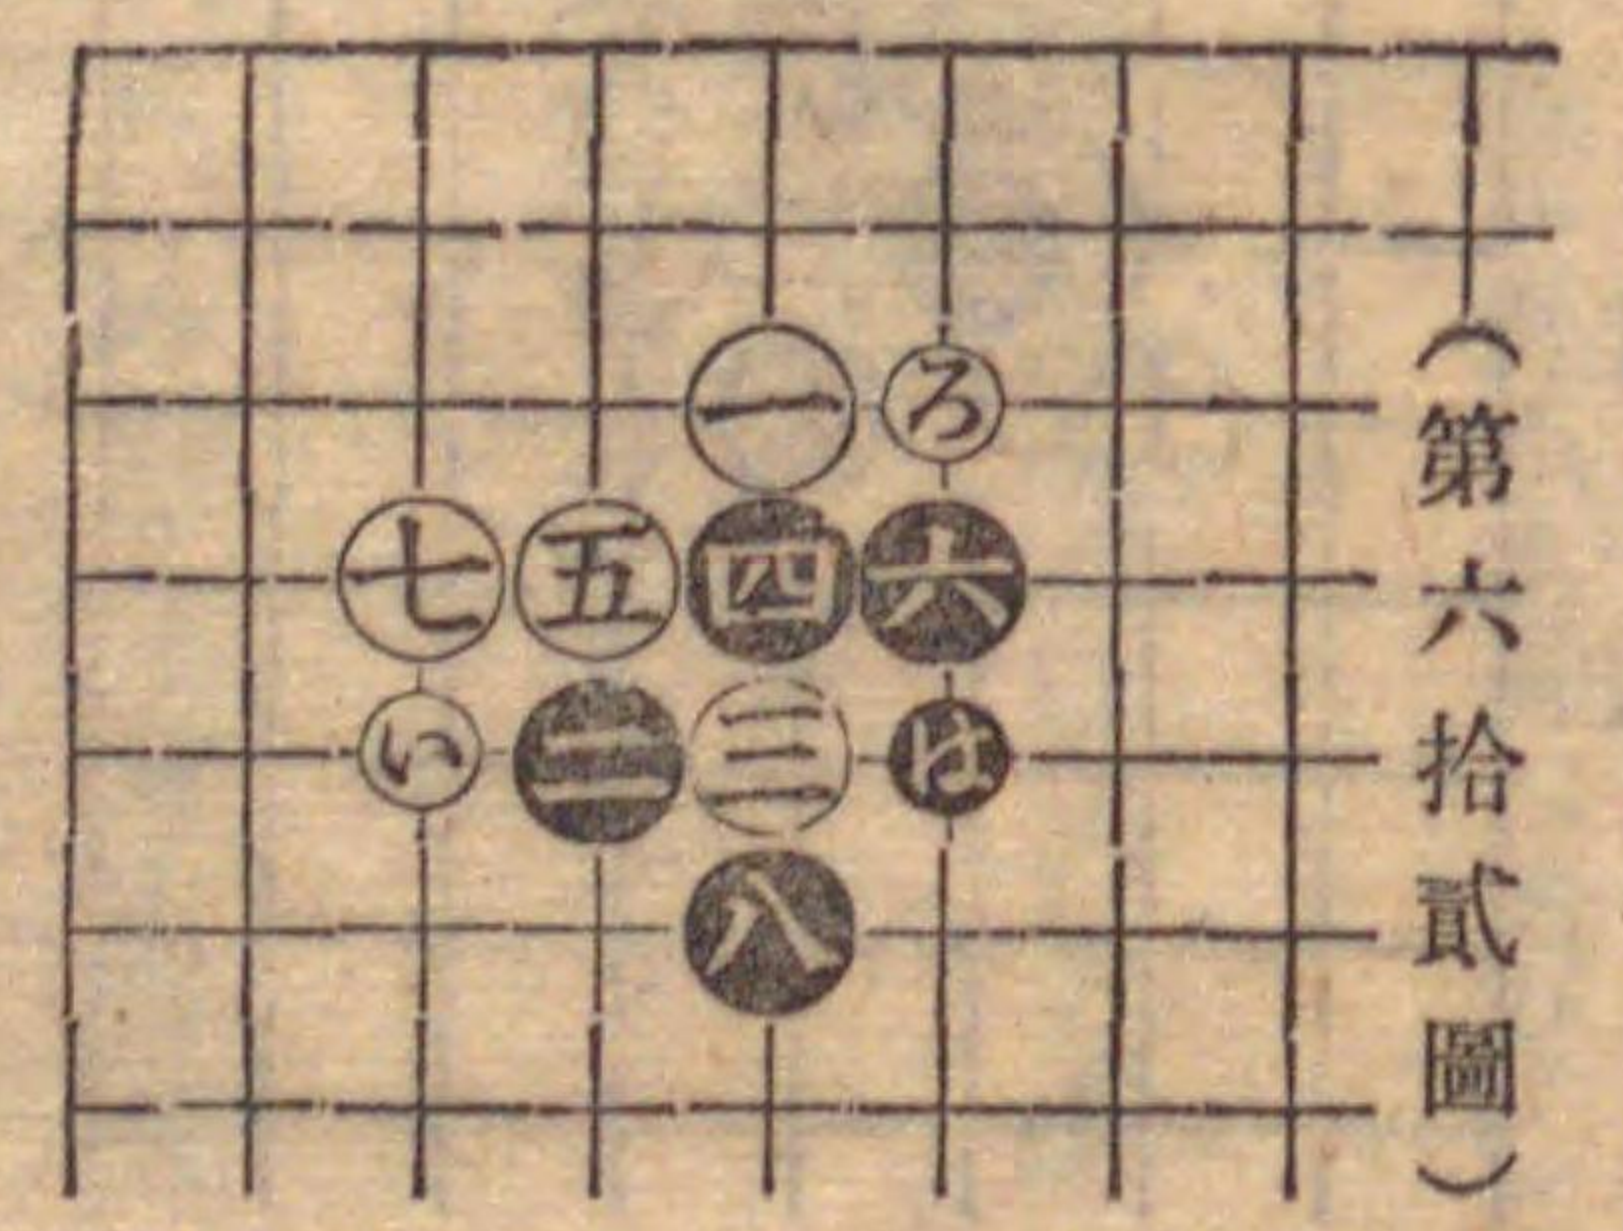 (第六拾貳圖)
一ろ
七五四六
い二三は
八